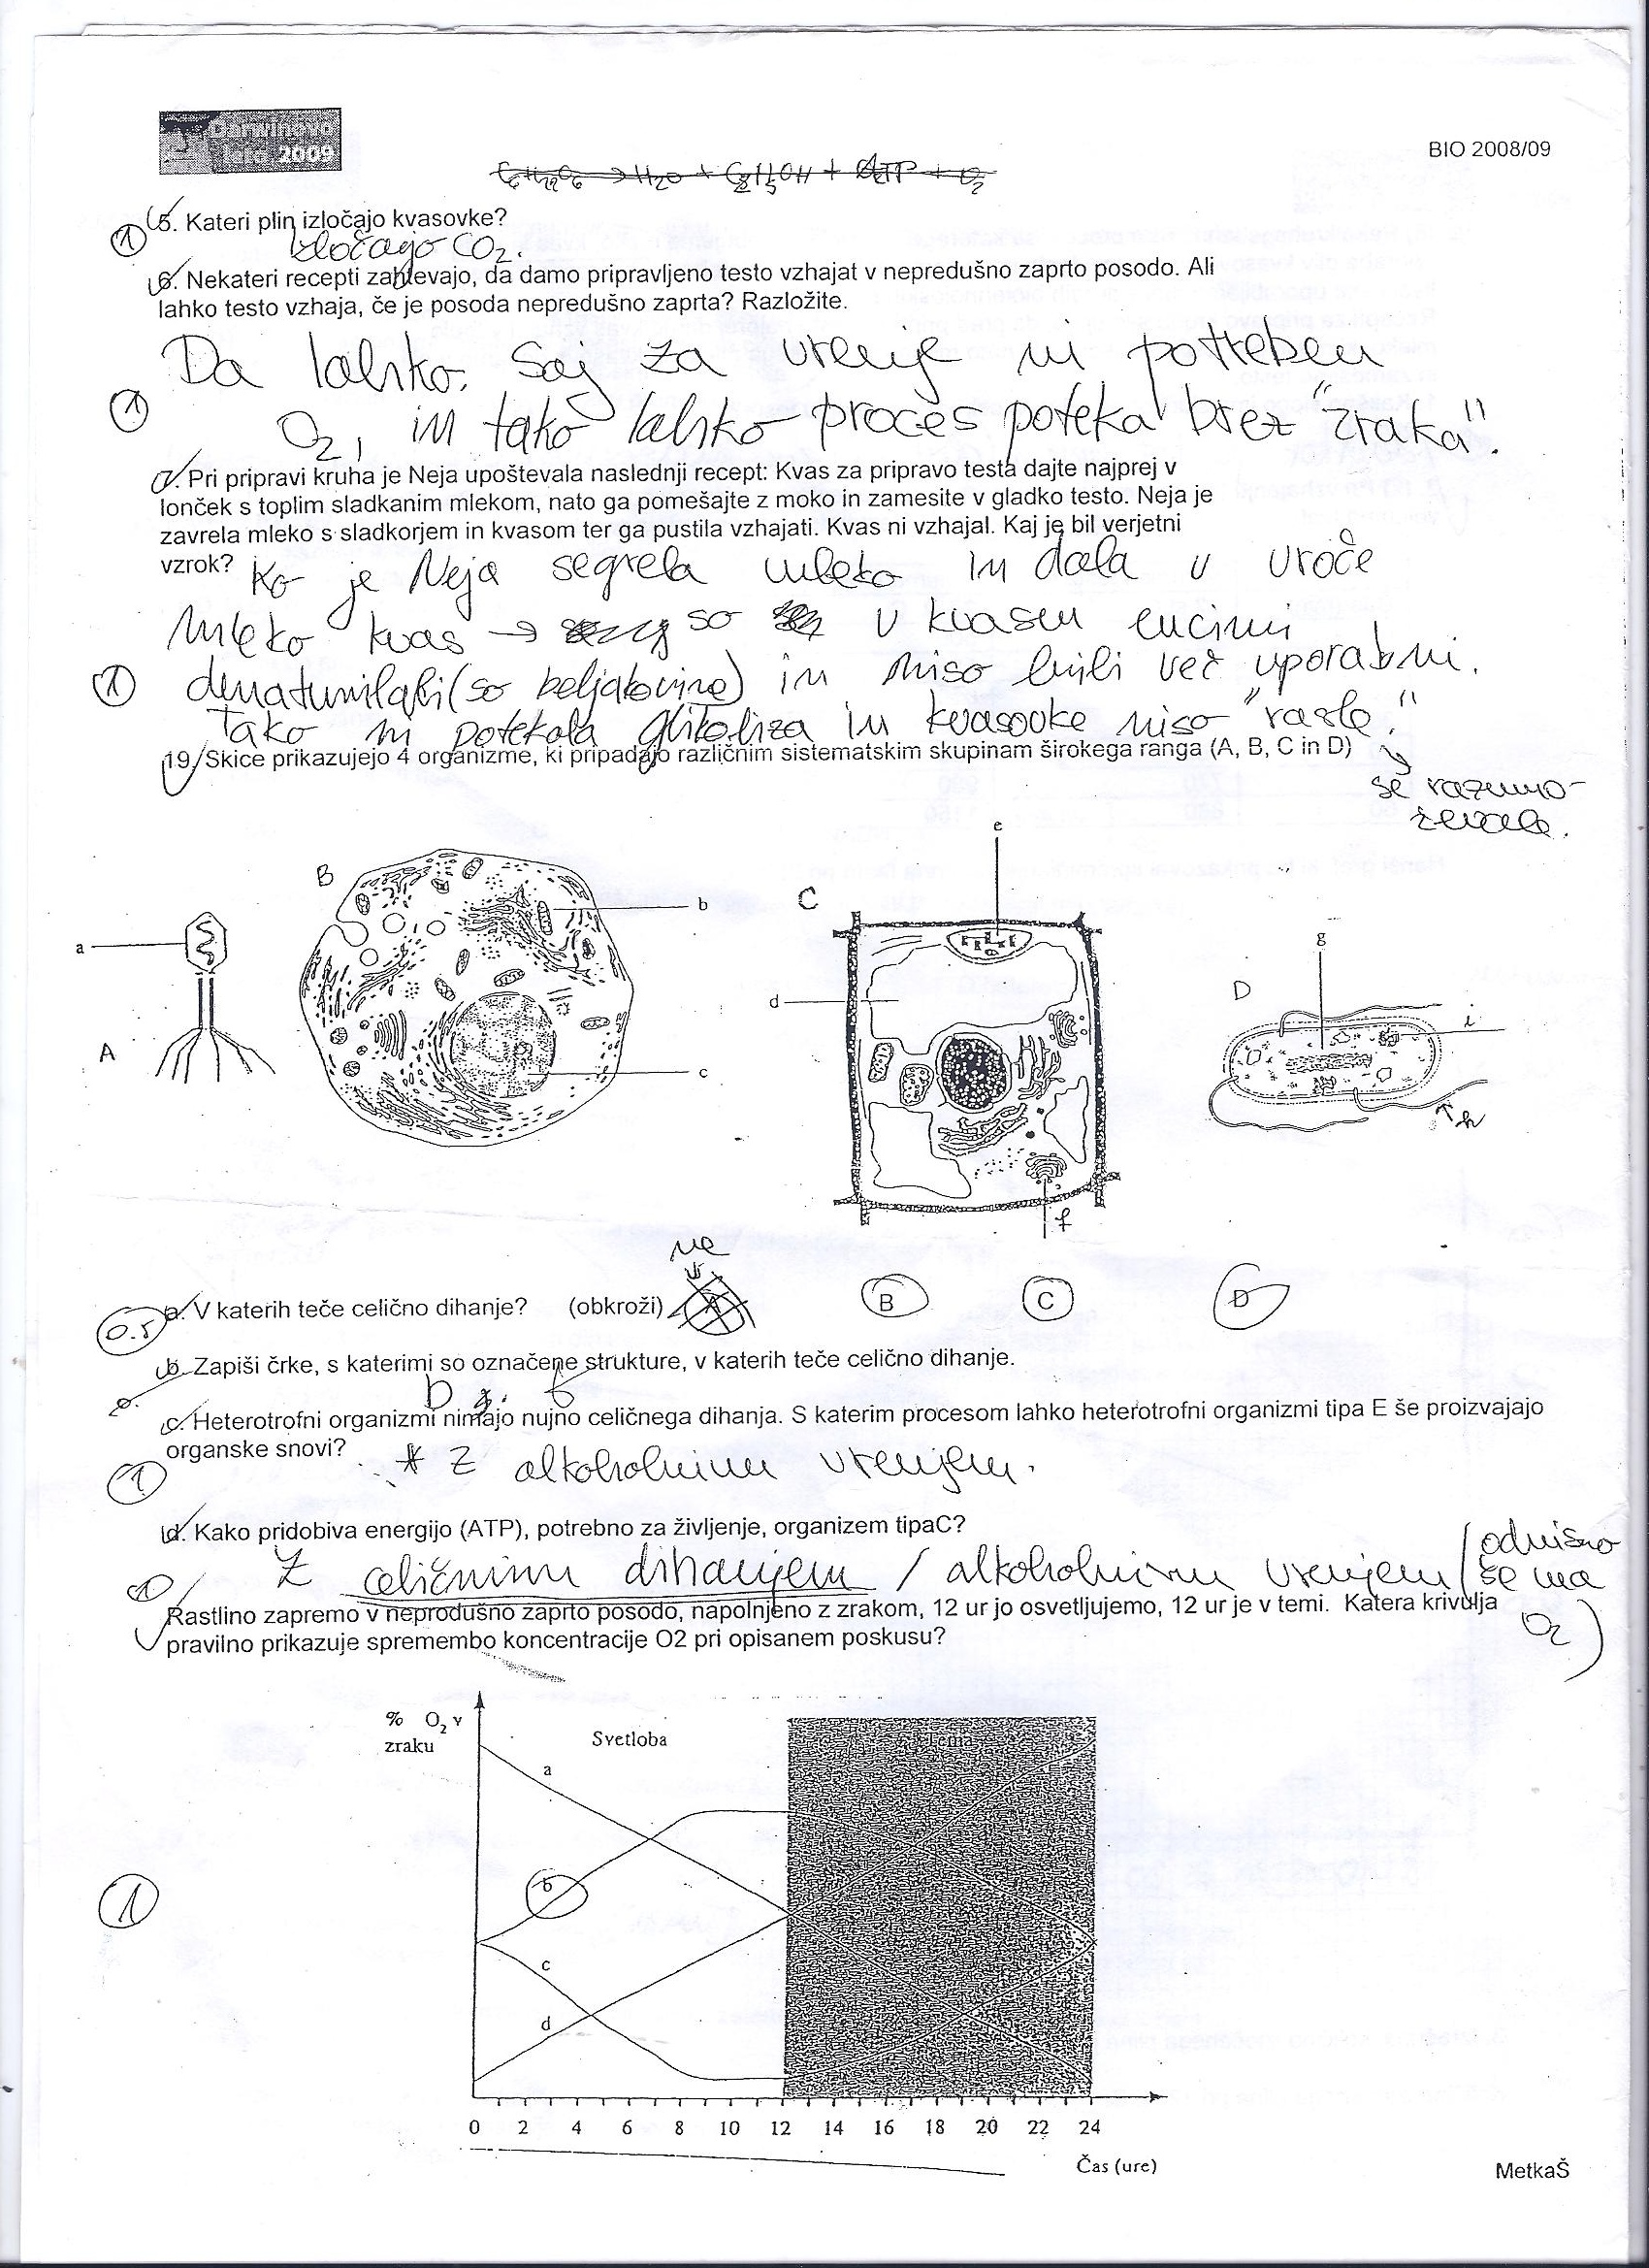 Darwinovo
leto 2009
BIO 2008/09
C6H12O6 → H2O + C2H5OH + ATP + O2
5. Kateri plin izločajo kvasovke?
1
Izločajo CO2.
6. Nekateri recepti zahtevajo, da damo pripravljeno testo vzhajat v nepredušno zaprto posodo. Ali
lahko testo vzhaja, če je posoda nepredušno zaprta? Razložite.
Da lahko. Saj za vrenje ni potreben
1
O2, in tako lahko proces poteka brez "zraka".
7. Pri pripravi kruha je Neja upoštevala naslednji recept: Kvas za pripravo testa dajte najprej v
lonček s toplim sladkanim mlekom, nato ga pomešajte z moko in zamesite v gladko testo. Neja je
zavrela mleko s sladkorjem in kvasom ter ga pustila vzhajati. Kvas ni vzhajal. Kaj je bil verjetni
vzrok?
Ko je Neja segrela mleko in dala v vroče
mleko kvas → so v kvasu encimi
1
denaturilali (so beljakovine) in niso bili več uporabni.
Tako ni potekala glikoliza in kvasovke niso "rasle."
se razmno-
ževale.
19. Skice prikazujejo 4 organizme, ki pripadajo različnim sistematskim skupinam širokega ranga (A, B, C in D)
a
A
B
b
c
C
e
d
f
D
g
i
h
ne
a. V katerih teče celično dihanje? (obkroži) A B C D
0.5
b. Zapiši črke, s katerimi so označene strukture, v katerih teče celično dihanje.
b
c. Heterotrofni organizmi nimajo nujno celičnega dihanja. S katerim procesom lahko heterotrofni organizmi tipa E še proizvajajo
organske snovi?
* Z alkoholnim vrenjem.
1
d. Kako pridobiva energijo (ATP), potrebno za življenje, organizem tipaC?
Z celičnim dihanjem / alkoholnim vrenjem (odvisno
če ima
O2)
1
Rastlino zapremo v neprodušno zaprto posodo, napolnjeno z zrakom, 12 ur jo osvetljujemo, 12 ur je v temi. Katera krivulja
pravilno prikazuje spremembo koncentracije O2 pri opisanem poskusu?
% O2 v
zraku
Svetloba
Tema
a
b
c
d
1
0 2 4 6 8 10 12 14 16 18 20 22 24
Čas (ure)
MetkaŠ